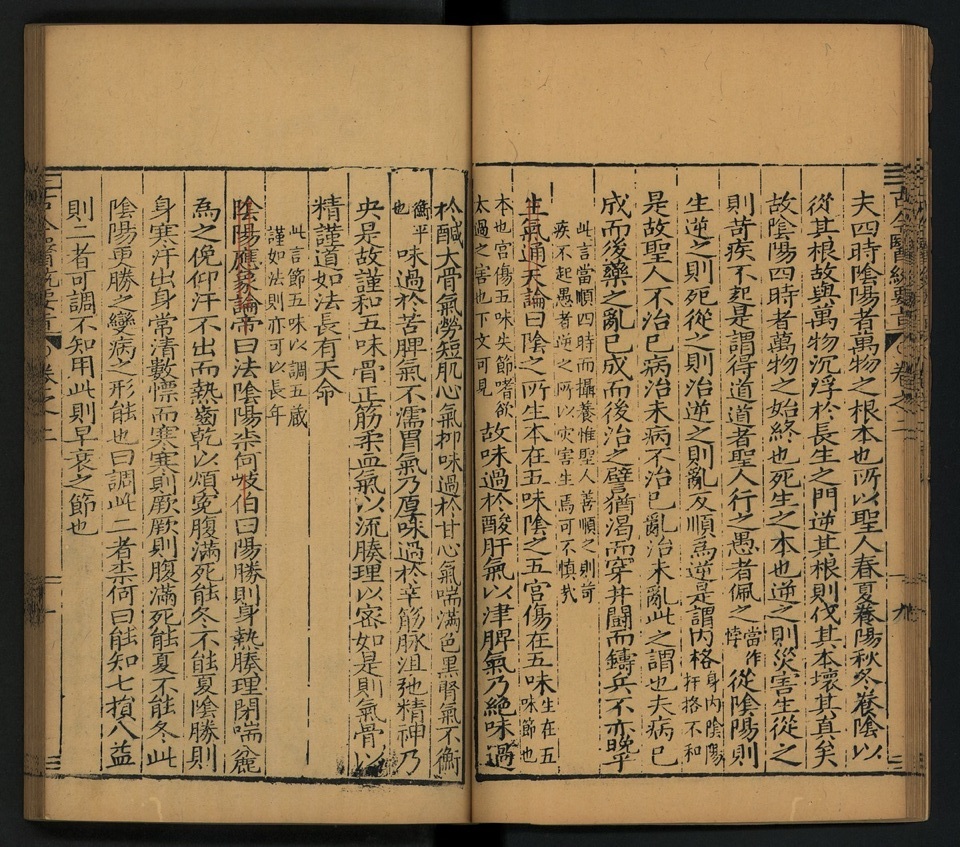 夫四時陰陽者萬物之根本也所以聖人春夏養陽秋冬養陰以
從其根故與萬物沉浮於長生之門逆其根則伐其本壞其真矣
故陰陽四時者萬物之始終也死生之本也逆之則災害生從之
則苛疾不起是謂得道道者聖人行之愚者佩之當作悖從陰陽則
生逆之則死從之則治逆之則亂反順為逆是謂內格身內陰陽扞格不和
是故聖人不治已病治未病不治已亂治未亂此之謂也夫病已
成而後藥之亂已成而後治之譬猶渴而穿井鬪而鑄兵不亦晚乎
此言當順四時而攝養惟聖人善順之則苛
疾不起愚者逆之所以災害生焉可不慎哉
生氣通天論曰陰之所生本在五味陰之五宮傷在五味生在五味節也
本也宮傷五味失節嗜飲
太過之害也下文可見
故味過於酸肝氣以津脾氣乃絕味過
於鹹大骨氣勞短肌心氣抑味過於甘心氣喘滿色黑腎氣不衡
衡平也
味過於苦脾氣不濡胃氣乃厚味過於辛筋脉沮弛精神乃
央是故謹和五味骨正筋柔血氣以流腠理以密如是則氣骨以
精謹道如法長有天命
此言節五味以調五藏
謹如法則亦可以長年
陰陽應象論帝曰法陰陽柰何岐伯曰陽勝則身熱腠理閉喘麄
為之俛仰汗不出而熱齒乾以煩冤腹滿死能冬不能夏陰勝則
身寒汗出身常清數慄而寒寒則厥厥則腹滿死能夏不能冬此
陰陽更勝之變病之形能也曰調此二者柰何曰能知七損八益
則二者可調不知用此則早衰之節也
卷之二
九